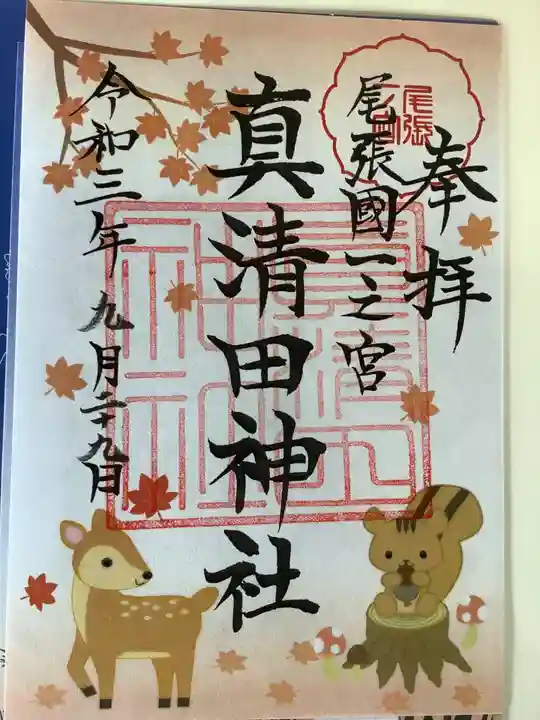 奉拝
尾張
一宮
尾張國一之宮
真清田神社
令和三年九月二十九日